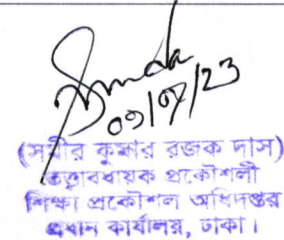 09/07/23
(সমীর কুমার রজক দাস)
তত্ত্বাবধায়ক প্রকৌশলী
শিক্ষা প্রকৌশল অধিদপ্তর
প্রধান কার্যালয়, ঢাকা।